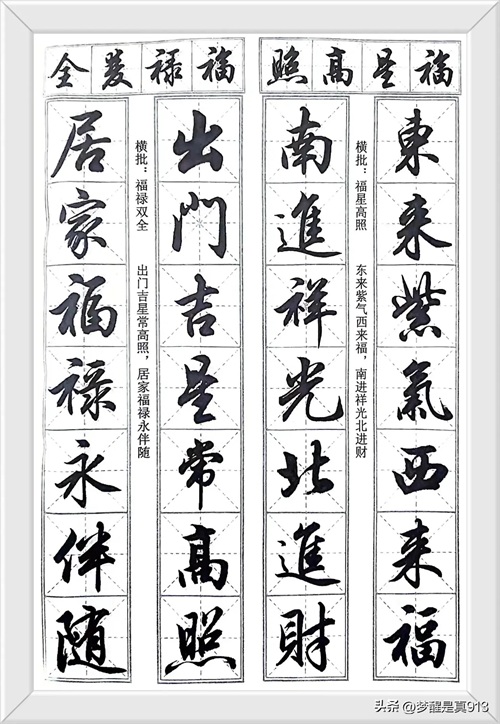 福星高照
東来紫氣西来福
横批：福星高照　东来紫气西来福，南进祥光北进财
南進祥光北進財
福禄双全
出門吉星常高照
横批：福禄双全　出门吉星常高照，居家福禄永伴随
居家福禄永伴随
头条 @梦醒是真913